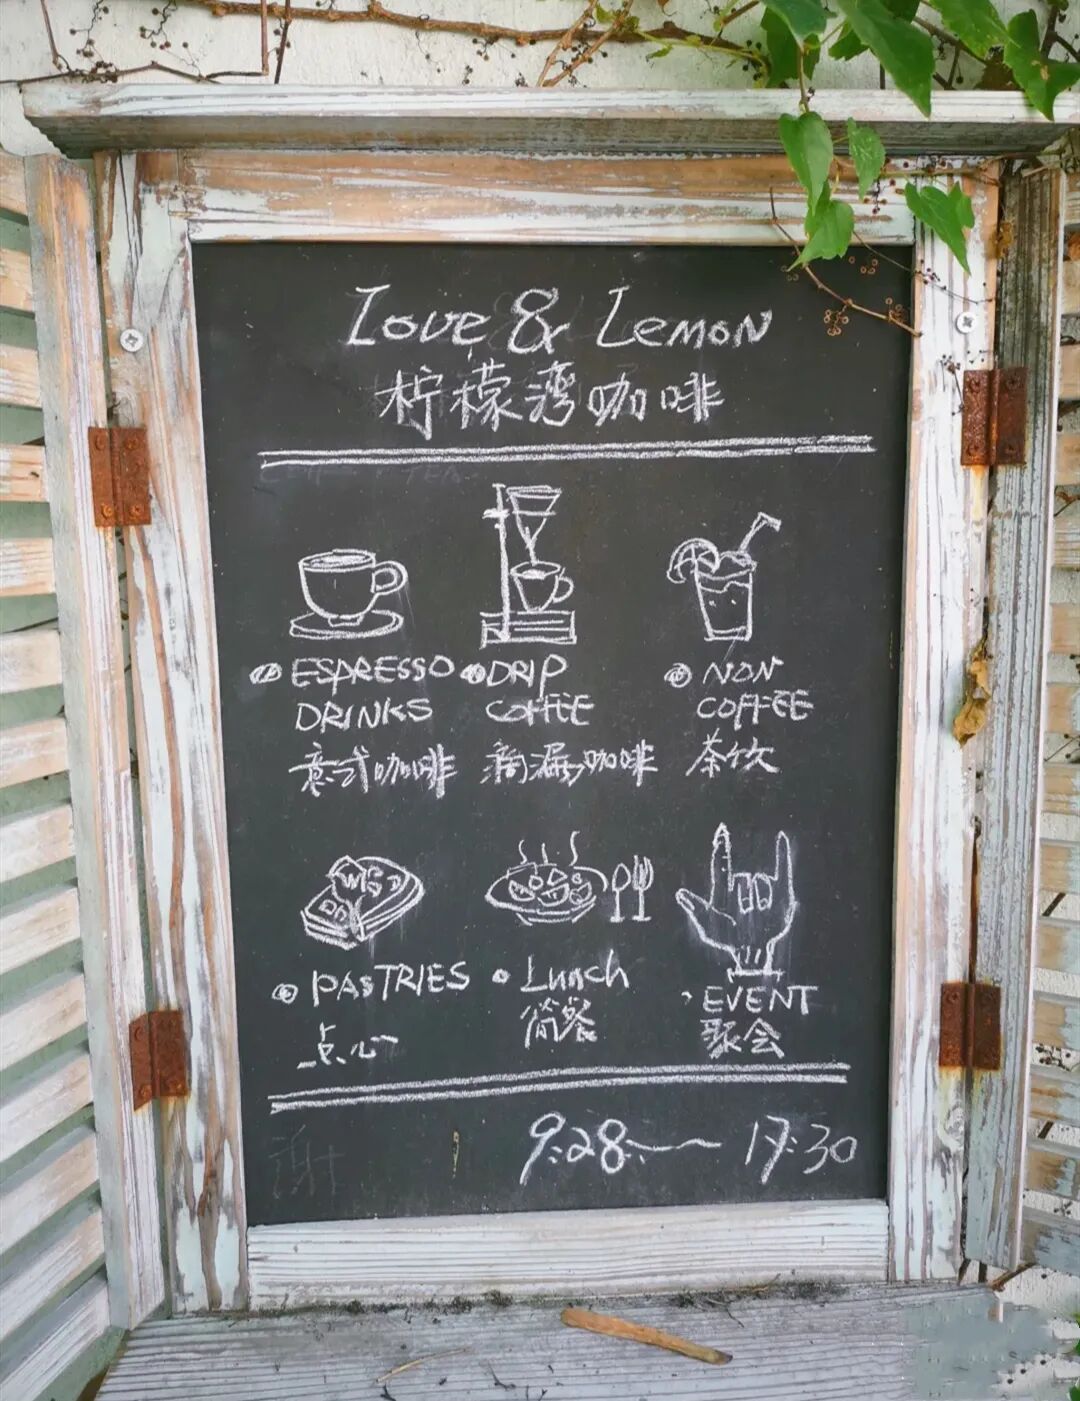 Love & Lemon
柠檬湾咖啡
ESPRESSO
DRINKS
意式咖啡
DRIP
COFFEE
滴漏咖啡
NON
COFFEE
茶饮
PASTRIES
点心
Lunch
简餐
EVENT
聚会
9:28~17:30
谢